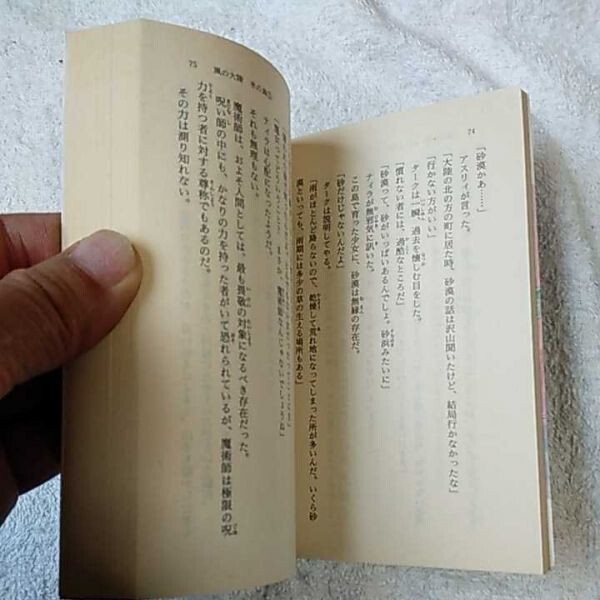 74
「砂漠かあ……」
アスリィが言った。
「大陸の北の方の町に居た時、砂漠の話は沢山聞いたけど、結局行かなかったな」
「行かない方がいい」
ダークは一瞬、過去を懐しむ目をした。
「慣れない者には、過酷なところだ」
「砂漠って、砂がいっぱいあるんでしょ。砂浜みたいに」
ティラが無邪気に訊いた。
この島で育った少女に、砂漠は無縁の存在だ。
「砂だけじゃないんだよ」
ダークは説明してやる。
「雨がほとんど降らないので、乾燥して荒れ地になってしまった所が多いんだ。いくら砂
漠といっても、雨期には多少の草の生える場所もある」
75 風の大陸
ティラは心配になったようだ。
それも無理もない。
魔術師は、およそ人間としては、最も畏敬の対象になるべき存在だった。
呪い師の中にも、かなりの力を持った者がいて恐れられているが、魔術師は極限の呪
力を持つ者に対する尊称でもあるのだ。
その力は測り知れない。